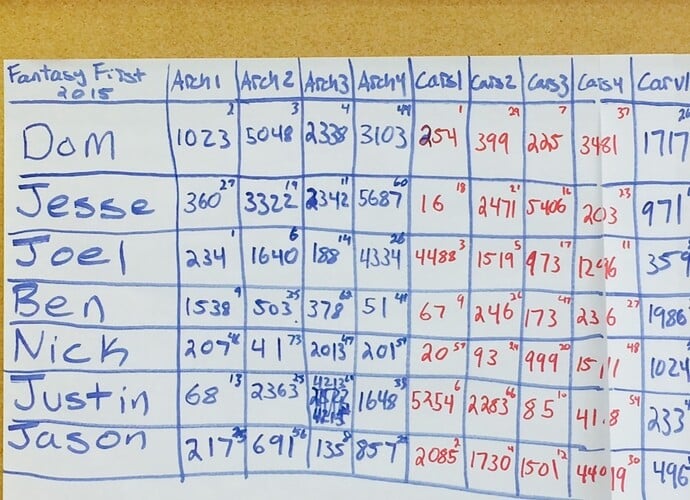 Fantasy First 2015 Arch1 Arch2 Arch3 Arch4 Cars1 Cars2 Cars3 Cars4 Carv1
Dom 1023 2 5048 3 2338 4 3103 254 1 399 29 225 7 3481 37 1717
Jesse 360 27 3322 19 2342 11 5687 60 16 18 2471 21 5406 16 203 23 971
Joel 234 1 1640 6 188 14 4334 26 4488 3 1519 5 973 17 1296 11 359
Ben 1538 9 503 25 378 51 67 9 246 173 47 236 27 1986
Nick 207 41 73 2013 47 201 20 57 93 24 999 20 1511 48 1024
Justin 68 13 2363 1648 5254 6 2283 66 85 10 41.8 54 233
Jason 217 691 56 135 8 857 2085 2 1730 4 1501 12 4401 30 496